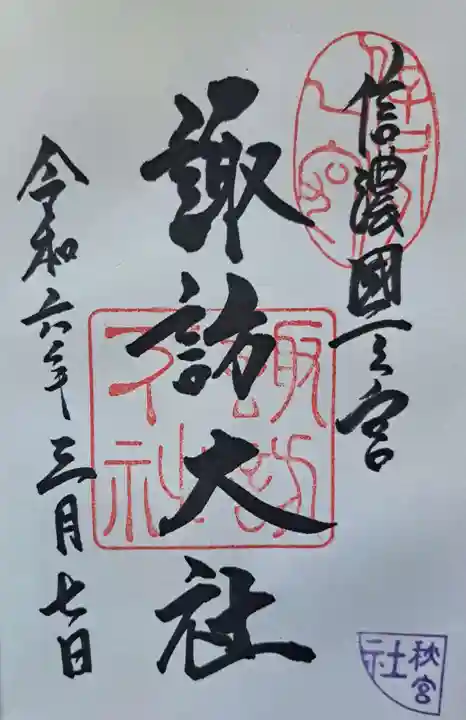 信濃國一之宮
諏訪大社
令和六年三月七日
諏訪
下社
秋宮
社